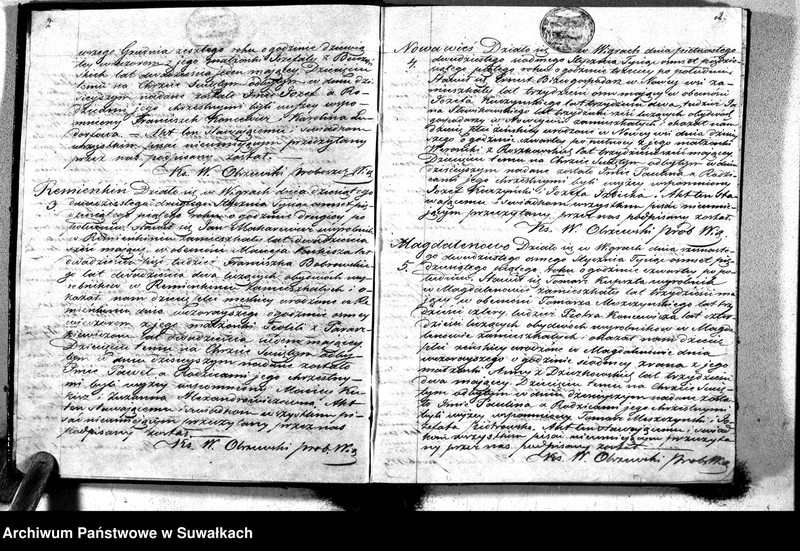 2
wrzego Grudnia zeszłego roku o godzinie dziewią
tej wieczorem z jego małżonki Józefaty z
skich lat dwadzieścia jeden mającej Dziecięciu
temu na Chrzcie Świętym odbytym w dniu dzi
siejszym nadane zostało Imie Józef a Ro
dzicami jego Chrzestnymi byli wyżej wspo
mniony Franciszek Koncewicz i Karolina
Akt ten Stawającemu i świadkom
wszystkim pisać nieumiejącym przeczytany
przez nas podpisany został.
Ks. W. Obrzewski proboszcz Wig.
Remienkin
3.
Działo się w Wigrach dnia dziesiątego
dwudziestego drugiego Stycznia Tysiąc ośmset pięć
dziesiątego piątego roku o godzinie drugiej po
południu. Stawił się Jan Makarewicz wyrobnik
w Remienkiniu zamieszkały lat dwadzieścia
mający, w obecności Macieja
dwadzieścia pięć tudzież Franciszka Bobrowskie
go lat dwadzieścia dwa liczących obydwóch wy
robników w Remienkiniu zamieszkałych i o
kazał nam dziecię płci męskiej urodzone w Re
mienkiniu dnia wczorajszego o godzinie ósmej
wieczorem z jego małżonki Teofili z
lat dwadzieścia siedem mającej.
Dziecięciu temu na Chrzcie Świętym odby
tym w dniu dzisiejszym nadane zostało
Imie Paweł a Rodzicami jego chrzestny
mi byli wyżej wspomniony Maciej
i Zuzanna Alexandrowiczowa. Akt
ten Stawającemu i świadkom wszystkim pi
sać nieumiejącym przeczytany przez nas
podpisany został.
Ks. W. Obrzewski prob. Wig.
2.
Nowawieś
4.
Działo się w Wigrach dnia piętnastego
dwudziestego siódmego Stycznia Tysiąc ośmset pięćdzie
siątego piątego roku o godzinie trzeciej po południu.
Stawił się Ernest gospodarz w Nowej wsi za
mieszkały lat trzydzieści ośm mający w obecności
Józefa Kuczyńskiego lat trzydzieści dwa, tudzież
na lat trzydzieści trzy liczących obydwóch
gospodarzy w Nowej wsi zamieszkałych i okazał nam
dziecię płci żeńskiej urodzone w Nowej wsi dnia dzisiej
szego o godzinie czwartej po północy z jego małżonki
Weroniki z lat trzydzieści mającej.
Dziecięciu temu na Chrzcie Świętym odbytym w dniu
dzisiejszym nadane zostało Imie Paulina a Rodzi
cami jego chrzestnymi byli wyżej wspomniony
Józef Kuczyński i Józefa Akt ten Sta
wającemu i świadkom wszystkim pisać nieumie
jącym przeczytany przez nas podpisany został.
Ks. W. Obrzewski prob. Wig.
Magdalenowo
5.
Działo się w Wigrach dnia szesnaste
go dwudziestego ósmego Stycznia Tysiąc ośmset pięć
dziesiątego piątego roku o godzinie czwartej po po
łudniu. Stawił się Tomasz wyrobnik
w Magdalenowie zamieszkały lat trzydzieści ma
jący w obecności Tomasza Moszczyńskiego lat trzy
dzieści cztery tudzież Piotra Koncewicza lat czter
dzieści liczących obydwóch wyrobników w Magda
lenowie zamieszkałych i okazał nam dziecię
płci żeńskiej urodzone w Magdalenowie dnia
wczorajszego o godzinie siódmej z rana z jego
małżonki Anny z lat trzydzieści
dwa mającej. Dziecięciu temu na Chrzcie Świę
tym odbytym w dniu dzisiejszym nadane zosta
ło Imie Paulina a Rodzicami jego chrzestnymi
byli wyżej wspomniony Tomasz Moszczyński i Jó
zefata Piotrowska. Akt ten Stawającemu i świad
kom wszystkim pisać nieumiejącym przeczyta
ny przez nas podpisany został.
Ks. W. Obrzewski prob. Wig.
Archiwum Państwowe w Suwałkach